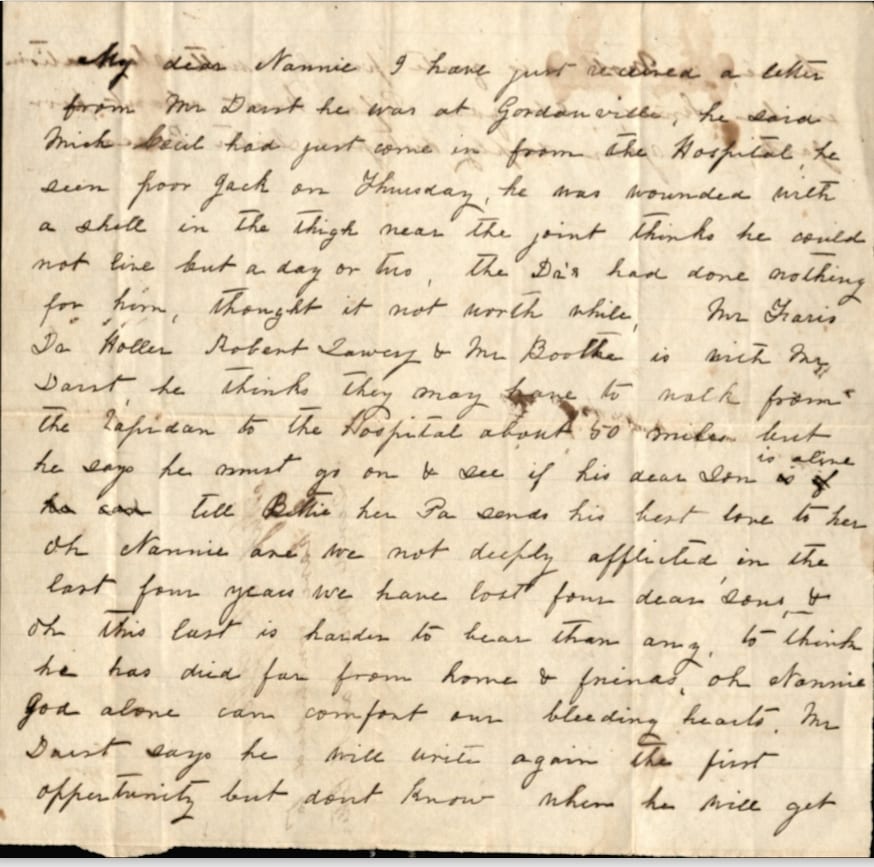 My dear Nannie I have just received a letter
from Mr Darst he was at Gordonville, he said
Mich Cecil had just come in from the Hospital he
seen poor Jack on Thursday, he was wounded with
a shell in the thigh near the joint thinks he could
not live but a day or two, the Dr's had done nothing
for him, thought it not worth while, Mr Faris
Dr Holler Robert Lowery & Mr Boothe is with Mr
Darst, he thinks they may have to walk from
the Rapidan to the Hospital about 50 miles but
he says he must go on & see if his dear son is alive
tell Bettie her Pa sends his best love to her
Oh Nannie are we not deeply afflicted, in the
last four years we have lost four dear sons, &
Oh this last is harder to bear than any, to think
he has died far from home & friends, oh Nannie
God alone can comfort our bleeding hearts. Mr
Darst says he will write again the first
oppertunity but dont know when he will get